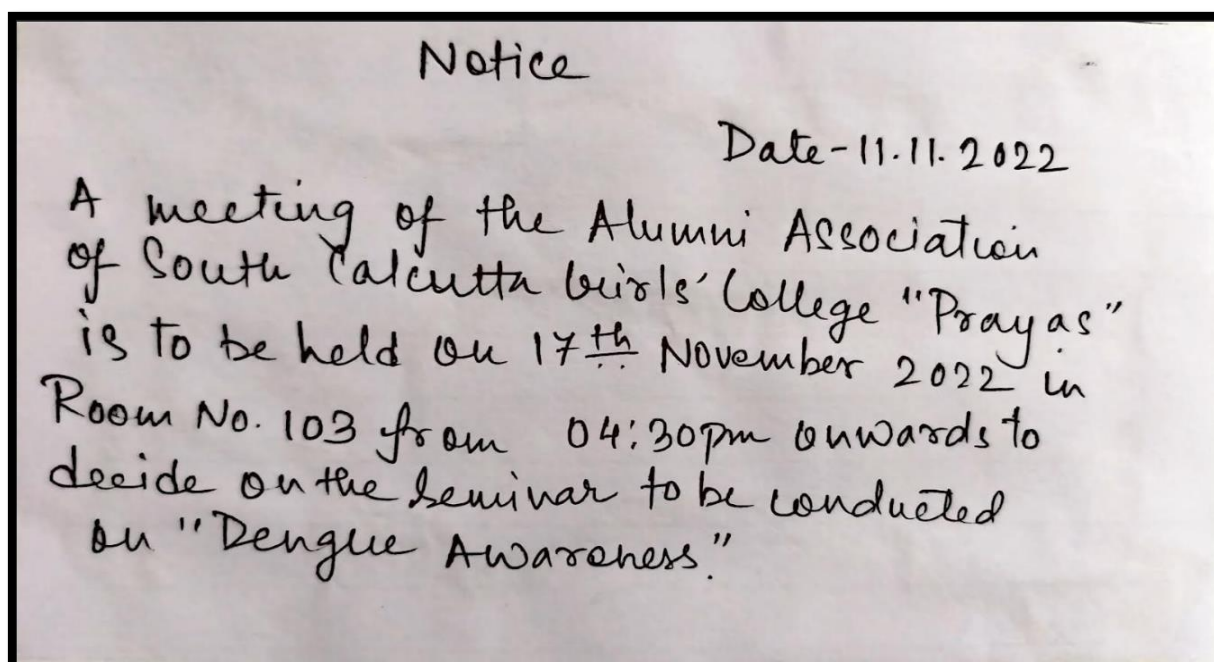 Notice
Date-11.11.2022
A meeting of the Alumni Association
of South Calcutta Girls' College "Prayas"
is to be held on 17th November 2022 in
Room No. 103 from 04:30pm onwards to
decide on the seminar to be conducted
on "Dengue Awareness."